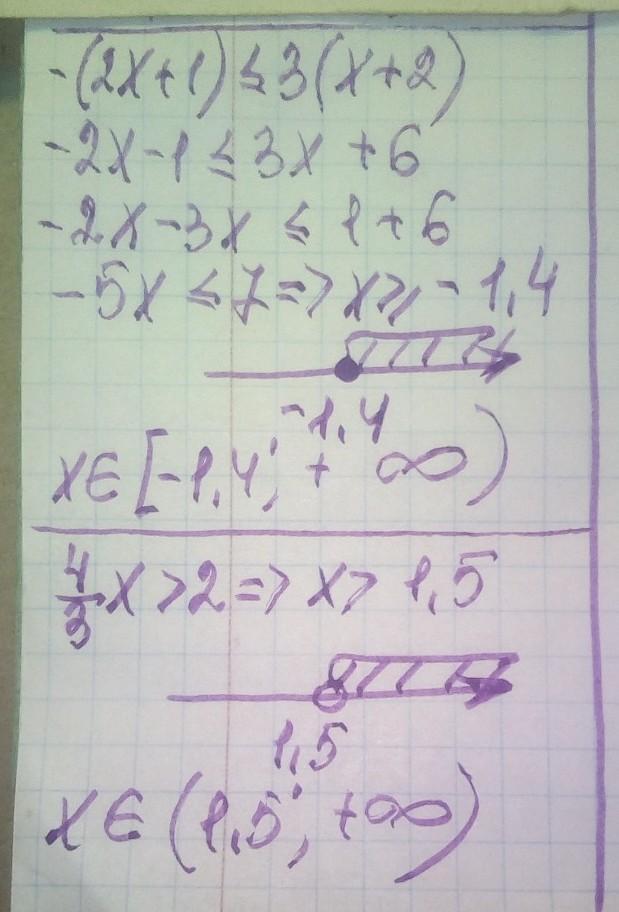 -(2x+1) ≤ 3(x+2)
-2x-1 ≤ 3x +6
-2x-3x ≤ 1+6
-5x ≤ 7 => x ≥ -1,4
-1,4
x∈[-1,4; +∞)
4/3 x > 2 => x > 1,5
1,5
x∈(1,5; +∞)